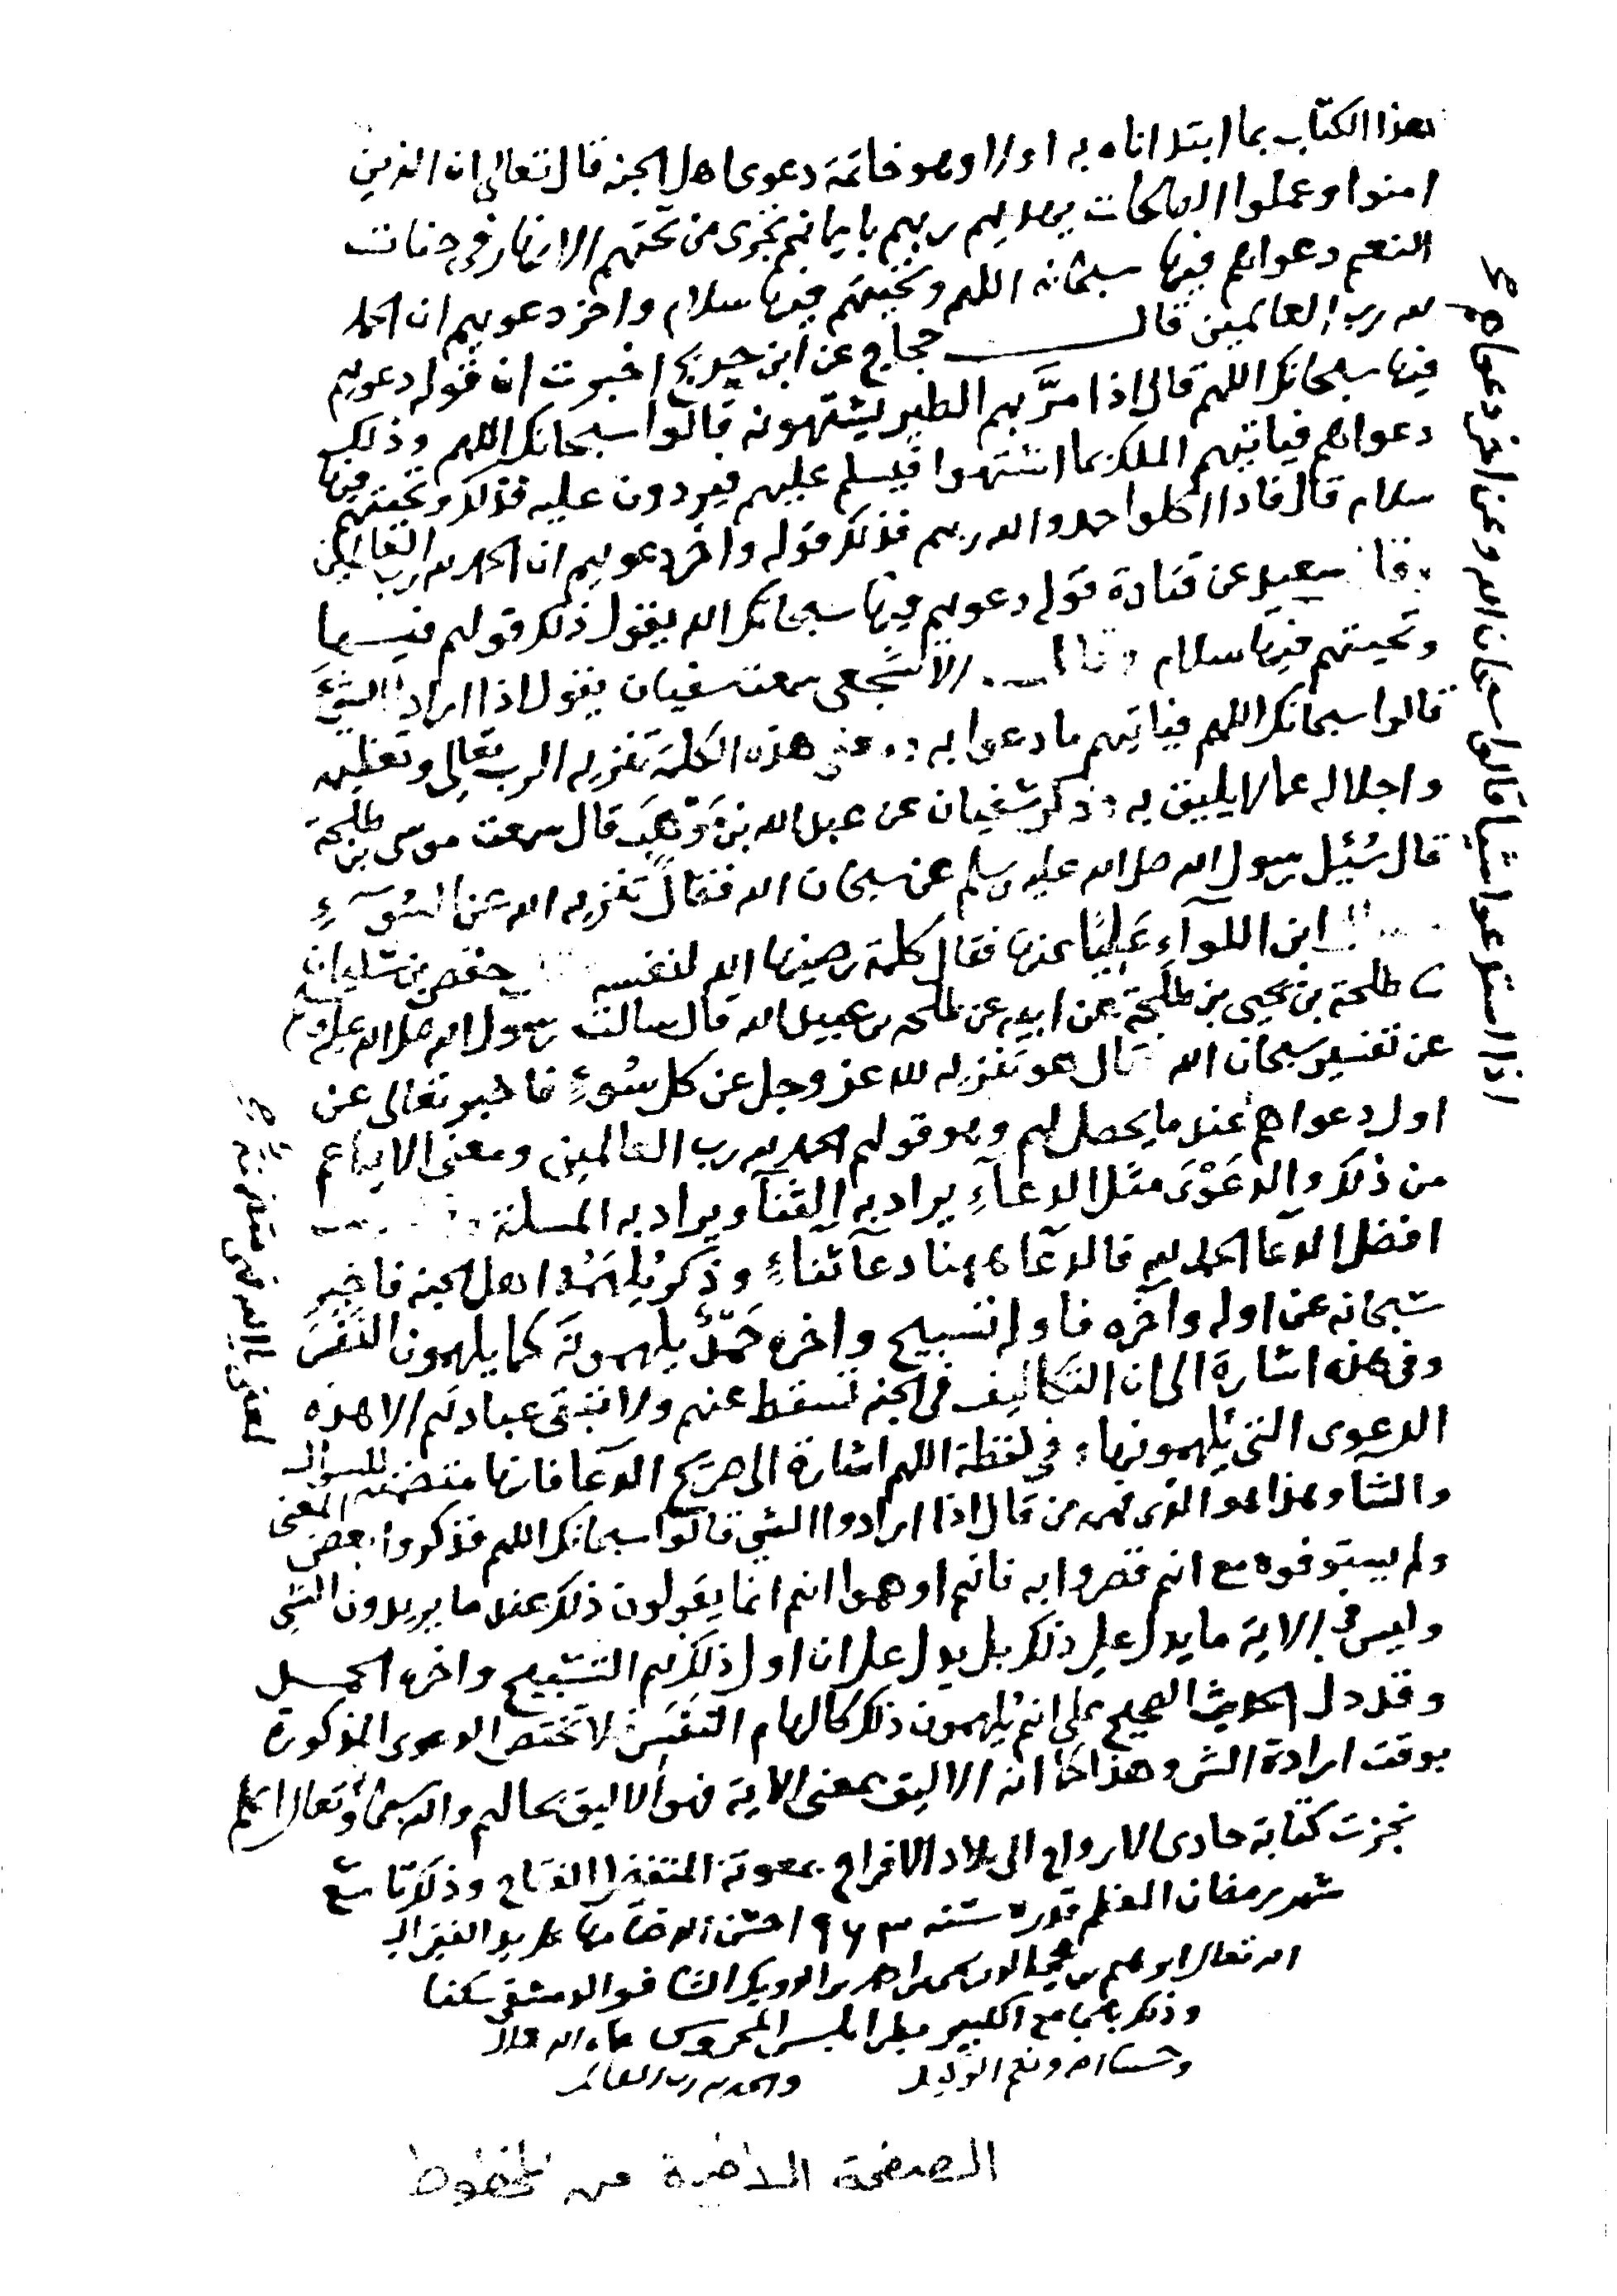 هذا الكتاب بما ابتداناه به اولا وهو خاتمة دعوى اهل الجنة قال تعالى ان الذين
امنوا وعملوا الصالحات يهديهم ربهم بايمانهم تجرى من تحتهم الانهار فى جنات
النعيم دعواهم فيها سبحانه اللهم وتحيتهم فيها سلام واخر دعويهم ان الحمد
لله رب العالمين قال حجاج عن ابن جريج اخبرت ان قوله دعويهم
فيها سبحانك اللهم قال اذا مرَّ بهم الطير يشتهونه قالوا سبحانك اللهم وذلك
دعواهم فياتيهم الملك بما اشتهوا فيسلم عليهم فيردون عليه فذلك وتحيتهم فيها
سلام قال فاذا اكلوا حمدوا الله ربهم فذلك قوله واخر دعويهم ان الحمد لله رب العالمين
سعيد عن قتادة قوله دعويهم فيها سبحانك الله يقول ذلك قولهم فيها
وتحيتهم فيها سلام وقال الاشجعى سمعت سفيان يقول اذا اراد الشئ
قالوا سبحانك اللهم فياتيهم ما دعوا به ومعنى هذه الكلمة تنزيه الرب تعالى وتعظيمه
واجلاله عما لا يليق به وذكر سفيان عن عبد الله بن مَوْهَب قال سمعت موسى بن طلحة
قال سُئِل رسول الله صلى الله عليه وسلم عن سبحان الله فقال تنزيه الله عن السُوءِ
ابن اللوآء عَليًا عنها فقال كلمة رضيها الله لنفسه حفص بن سليمان
طلحة بن يحيى بن طلحة عن ابيه عن طلحه بن عبيد الله قال سالت رسول الله صلى الله عليه وسلم
عن تفسير سبحان الله قال هو تنزيه لله عز وجل عن كل سُوءٍ فاخبر تعالى عن
اول دعواهم عند ما يحصل لهم وهو قولهم الحمد لله رب العالمين ومعنى الاية اعم
من ذلك والدعوَى مثل الدعآءِ يراد به الثنآ ويراد به المسلة
افضل الدعآ الحمد لله فالدعآ ههنا دعآ ثناءٍ وذكر يُلهَمُه اهل الجنة فاخبر
سبحانه عن اوله وآخره فاوله تسبيح واخره حَمْدٌ يلهمونه كما يلهمون النَفَسَ
وفى هذه اشارة الى ان التكاليف فى الجنة تسقط عنهم ولا تبقى عبادتهم الا هذه
الدعوى التى يُلهمونها وفى لفظة اللهم اشارة الى صريح الدعآ فانها متضمنه للسوال
والثنآ وهذا هو الذى فهمه من قال اذا ارادوا الشئ قالوا سبحانك اللهم فذكروا بعض المعنى
ولم يستوفوه مع انهم قصروا به فانهم اوهموا انهم انما يقولون ذلك عند ما يريدون الشئ
وليس فى الاية ما يدل على ذلك بل يدل على ان اول ذلك لهم التسبيح واخره الحمد
وقد دل الحديث الصحيح على انهم يُلهمون ذلك كالهام النفَس فلا تختص الدعوى المذكورة
بوقت ارادة الشئ وهذا كما انه الاليق بمعنى الاية فهو الاليق بحالهم والله سبحانه وتعالى اعلم
نجزت كتابة حادى الارواح الى بلاد الافراح بمعونة الفتاح وذلك تاسع
شهر رمضان المعظم قدره سنه ٩٦٣ احسن الله ختامها على يد الفقير الى
الله تعالى ابراهيم بن الشافعى الدمشقى سكنا
وذلك بالجامع الكبير بطرابلس المحروس
وحسبنا الله ونعم الوكيل والحمد لله رب العالمين
الصفحة الاخيرة من المخطوط
اذا استدعوا شيا قالوا سبحان الله وعن اخر دعاهم